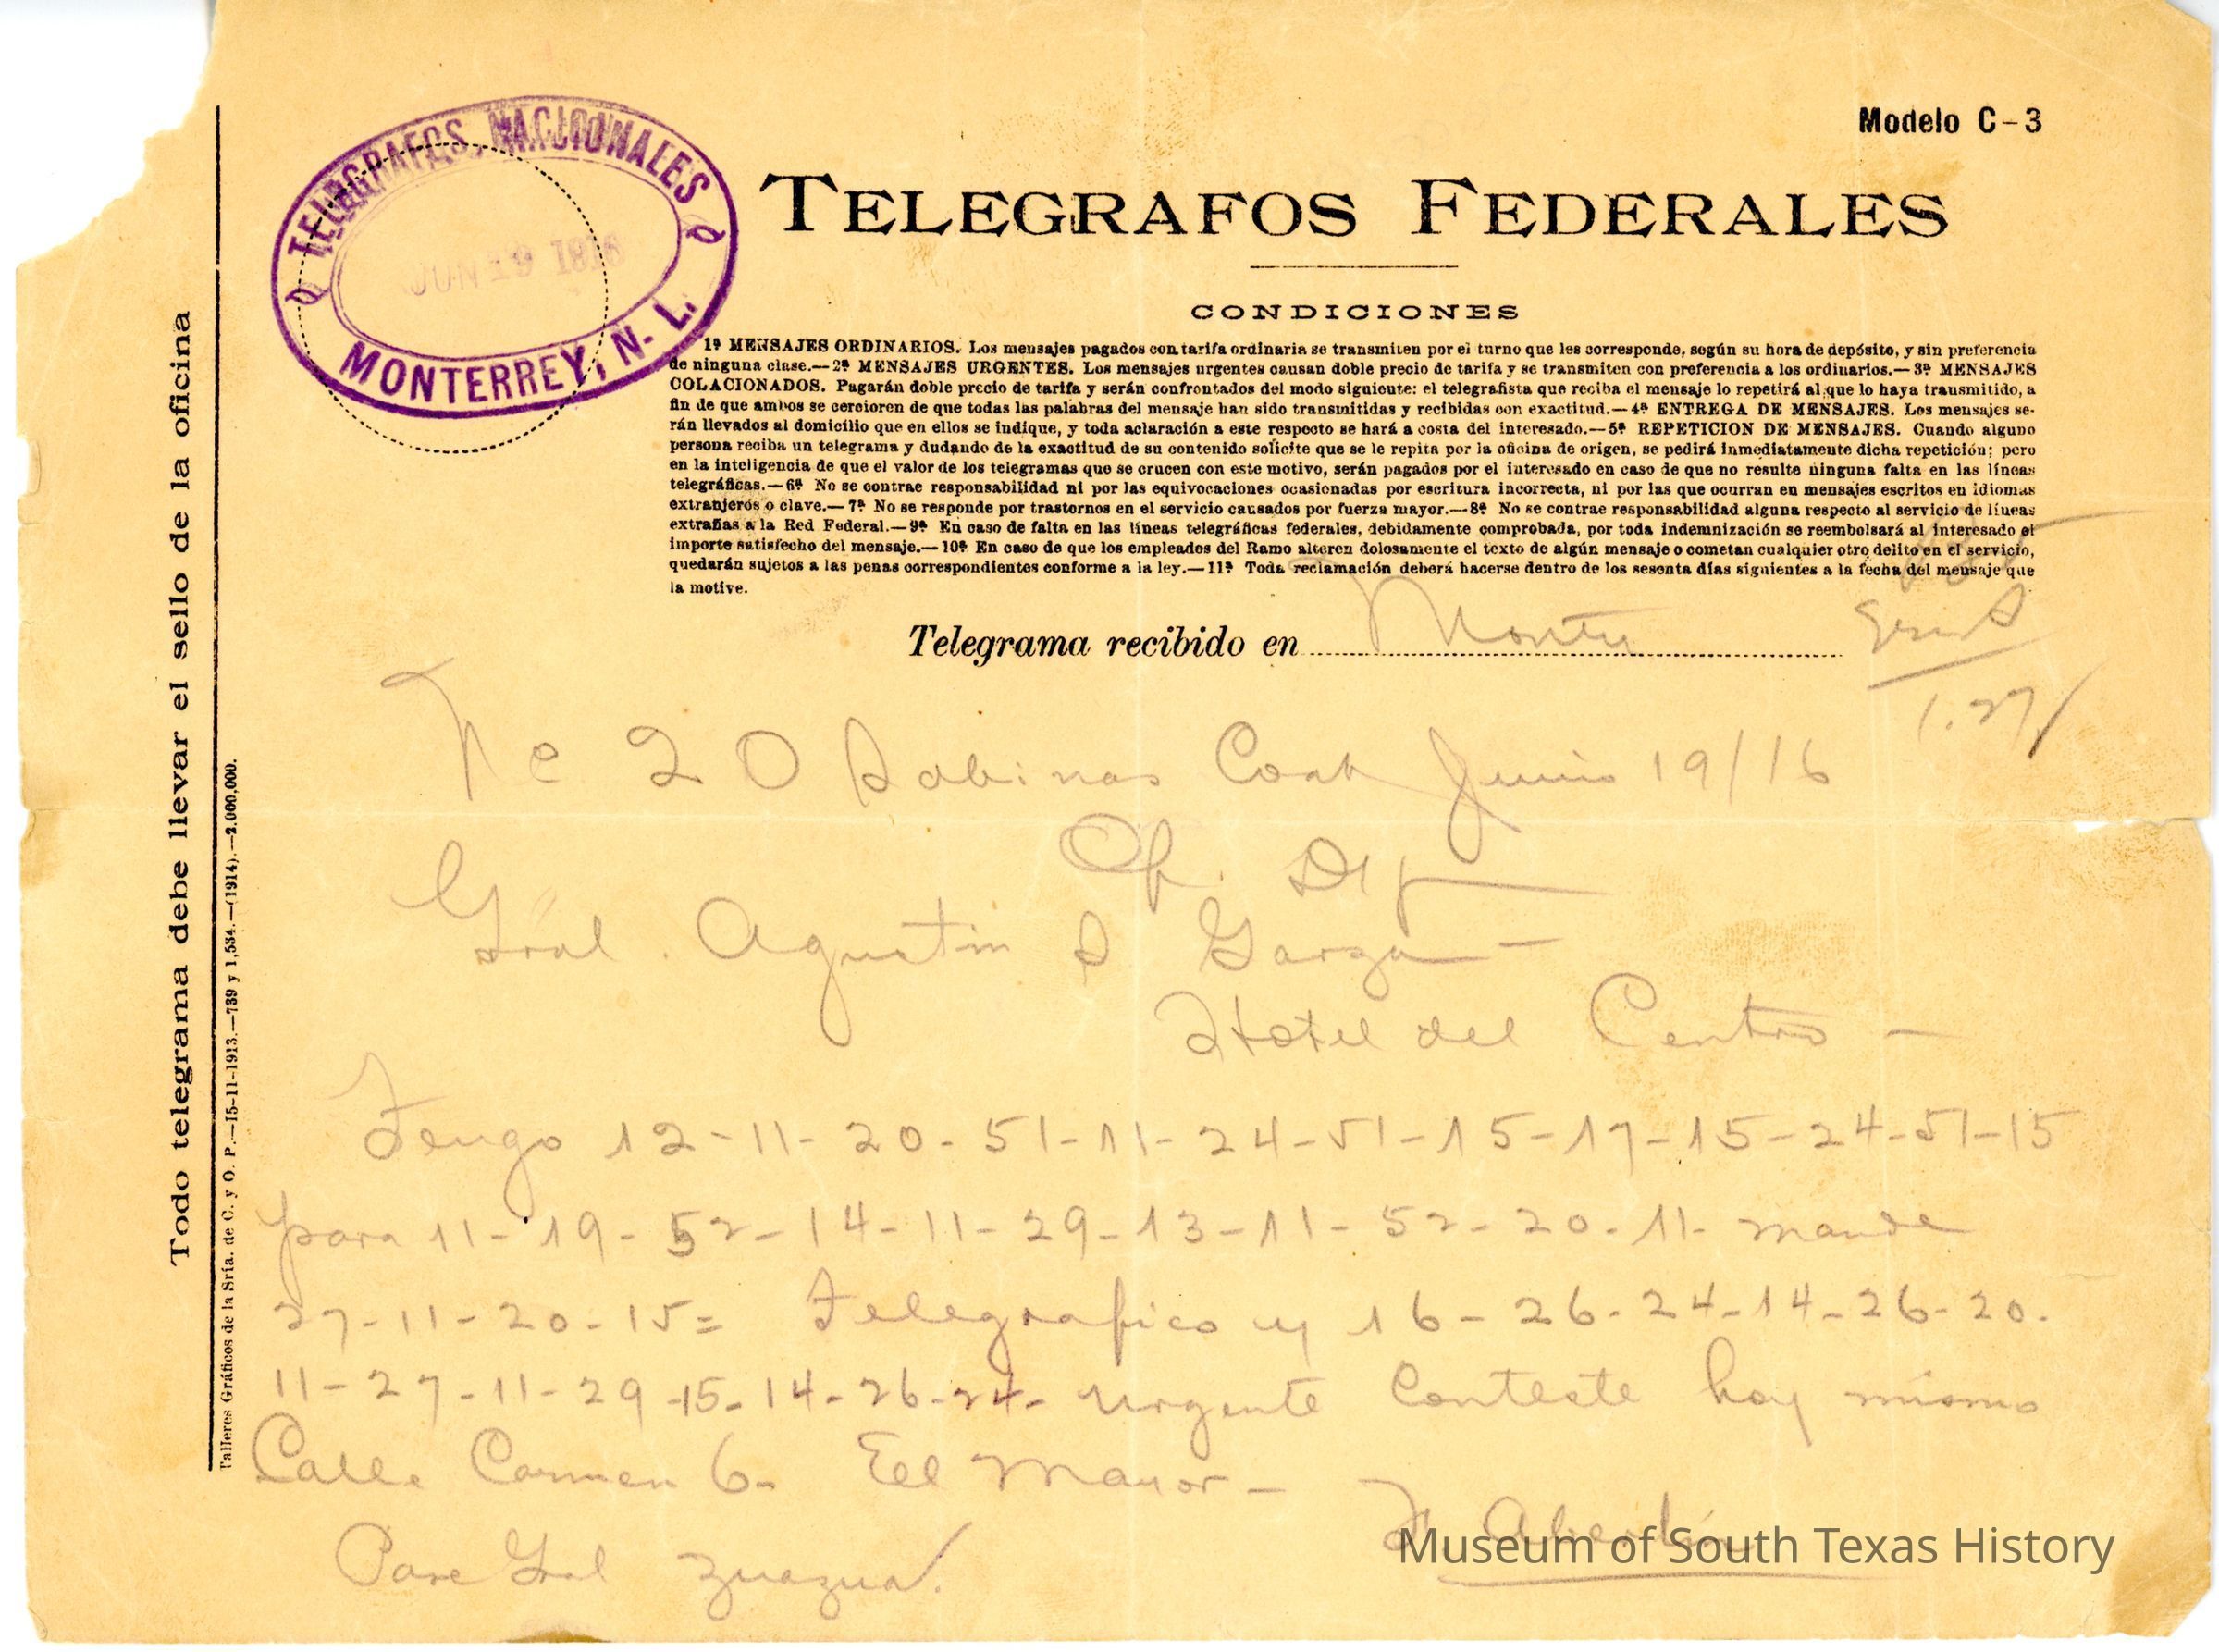 TELEGRAFOS NACIONALES
JUN 19 1916
MONTERREY, N. L.
Modelo C-3
TELEGRAFOS FEDERALES
CONDICIONES
1ª MENSAJES ORDINARIOS. Los mensajes pagados con tarifa ordinaria se transmiten por el turno que les corresponde, según su hora de depósito, y sin preferencia
de ninguna clase.—2ª MENSAJES URGENTES. Los mensajes urgentes causan doble precio de tarifa y se transmiten con preferencia a los ordinarios.—3ª MENSAJES
COLACIONADOS. Pagarán doble precio de tarifa y serán confrontados del modo siguiente: el telegrafista que reciba el mensaje lo repetirá al que lo haya transmitido, a
fin de que ambos se cercioren de que todas las palabras del mensaje han sido transmitidas y recibidas con exactitud.—4ª ENTREGA DE MENSAJES. Los mensajes se-
rán llevados al domicilio que en ellos se indique, y toda aclaración a este respecto se hará a costa del interesado.—5ª REPETICION DE MENSAJES. Cuando alguno
persona reciba un telegrama y dudando de la exactitud de su contenido solicite que se le repita por la oficina de origen, se pedirá inmediatamente dicha repetición; pero
en la inteligencia de que el valor de los telegramas que se crucen con este motivo, serán pagados por el interesado en caso de que no resulte ninguna falta en las líneas
telegráficas.—6ª No se contrae responsabilidad ni por las equivocaciones ocasionadas por escritura incorrecta, ni por las que ocurran en mensajes escritos en idiomas
extranjeros o clave.—7ª No se responde por trastornos en el servicio causados por fuerza mayor.—8ª No se contrae responsabilidad alguna respecto al servicio de líneas
extrañas a la Red Federal.—9ª En caso de falta en las líneas telegráficas federales, debidamente comprobada, por toda indemnización se reembolsará al interesado el
importe satisfecho del mensaje.—10ª En caso de que los empleados del Ramo alteren dolosamente el texto de algún mensaje o cometan cualquier otro delito en el servicio,
quedarán sujetos a las penas correspondientes conforme a la ley.—11ª Toda reclamación deberá hacerse dentro de los sesenta días siguientes a la fecha del mensaje que
la motive.
Telegrama recibido en
1.27/
20 Sabinas Coah Junio 19/16
Of.
Gral. Agustin S Garza —
Hotel del Centro —
Tengo 12-11-20-51-11-24-51-15-17-15-24-51-15
para 11-19-52-14-11-29-13-11-52-20-11- mande
27-11-20-15= Telegrafico y 16-26-24-14-26-20.
11-27-11-29-15-14-26-24- urgente Conteste hoy mismo
Calle Carmen 6- El Mayor —
Pase Gral Zuazua.
Todo telegrama debe llevar el sello de la oficina
Talleres Gráficos de la Sría. de C. y O. P.—15-11-1913.—739 y 1,534.—(1914).—2.000,000.
Museum of South Texas History